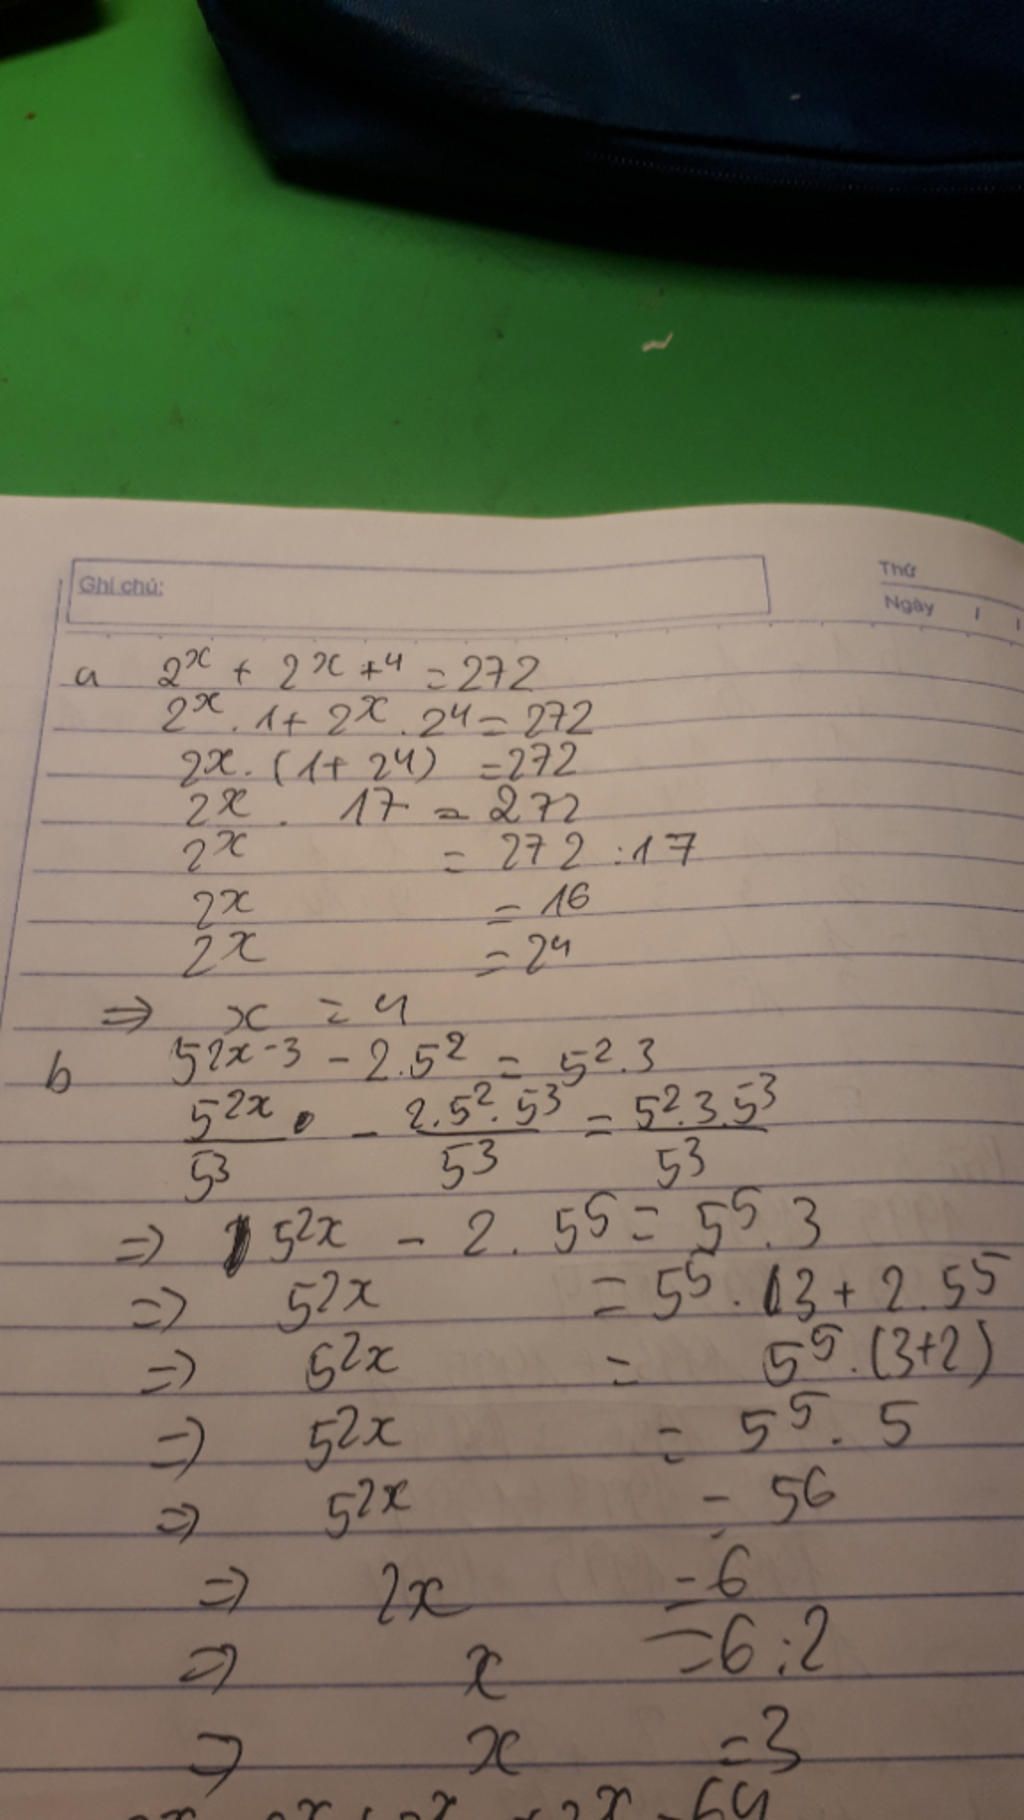 Ghi chú:
Thứ
Ngày / /
a 2ˣ + 2ˣ⁺⁴ = 272
2ˣ . 1 + 2ˣ . 2⁴ = 272
2ˣ . (1 + 2⁴) = 272
2ˣ . 17 = 272
2ˣ = 272 : 17
2ˣ = 16
2ˣ = 2⁴
⇒ x = 4
b 5²ˣ⁻³ - 2.5² = 5².3
5²ˣ/5³ - 2.5².5³/5³ = 5².3.5³/5³
⇒ 5²ˣ - 2 . 5⁵ = 5⁵ . 3
⇒ 5²ˣ = 5⁵ . 3 + 2 . 5⁵
⇒ 5²ˣ = 5⁵ . (3+2)
⇒ 5²ˣ = 5⁵ . 5
⇒ 5²ˣ = 5⁶
⇒ 2x = 6
⇒ x = 6 : 2
⇒ x = 3